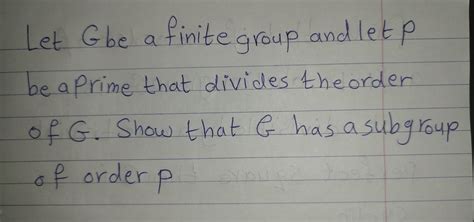 Let G be a finite group and let p
be a prime that divides the order
of G. Show that G has a subgroup
of order p